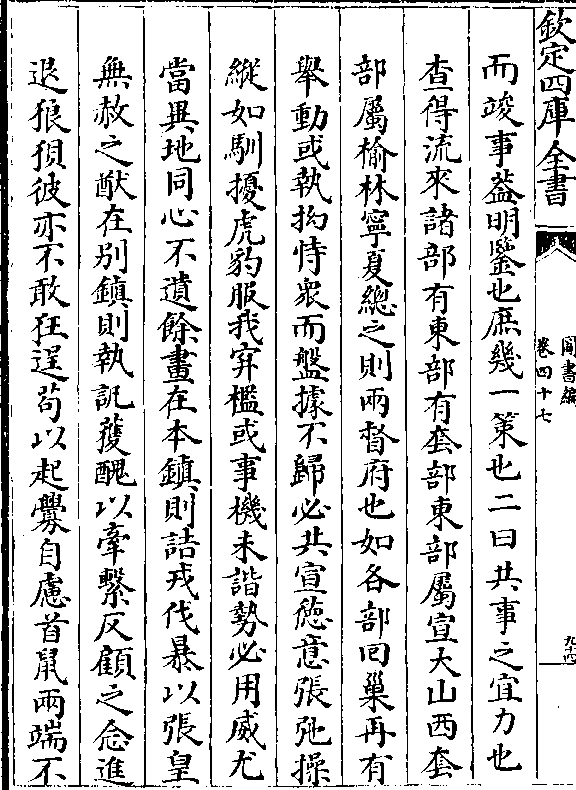 欽定四庫全書
圖書編
卷四十七
九十四
而竣事蓋明鑒也庶幾一策也二曰共事之宜力也
查得流來諸部有東部有套部東部屬宣大山西套
部屬榆林寧夏總之則兩督府也如各部回巢再有
舉動或執拗恃衆而盤據不歸必共宣德意張弛操
縱如馴擾虎豹服我穽檻或事機未諧勢必用威尤
當異地同心不遺餘畫在本鎮則詰戎伐暴以張皇
無赦之猷在别鎮則執訊獲醜以牽繫反顧之念進
退狼狽彼亦不敢狂逞苟以起釁自慮首鼠兩端不